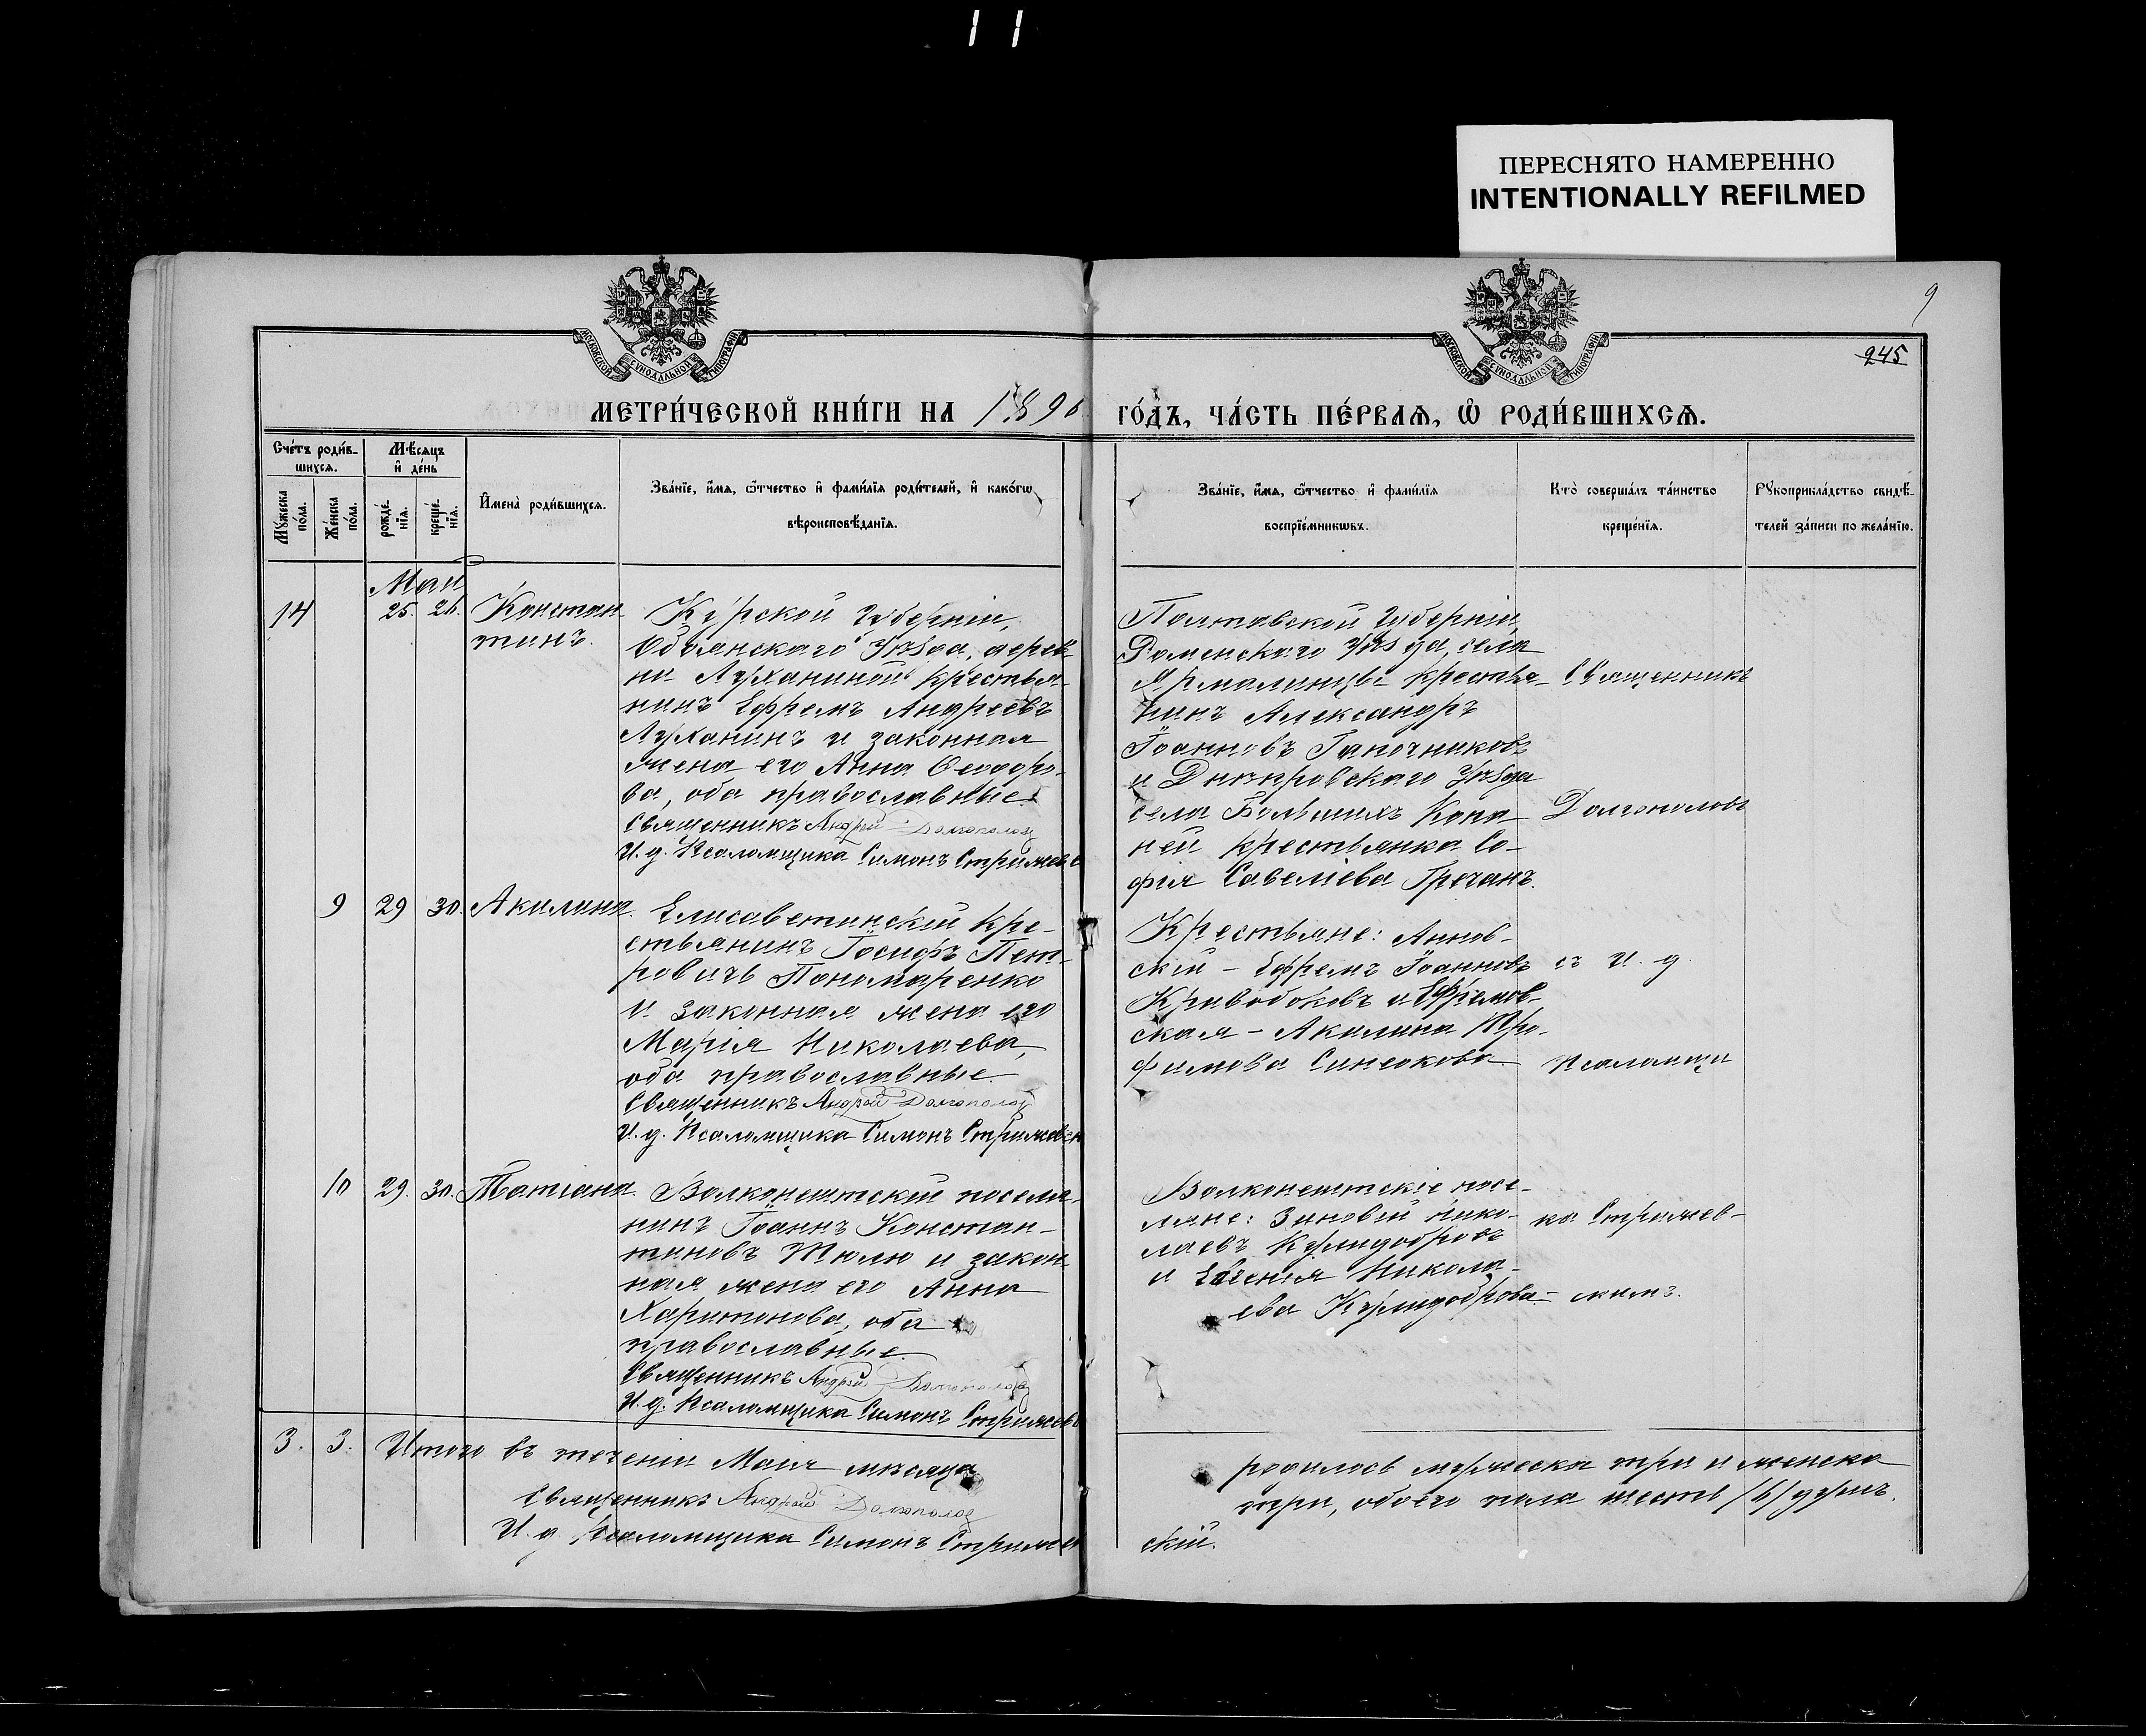 11
ПЕРЕСНЯТО НАМЕРЕННО
INTENTIONALLY REFILMED
9
245
МОСКОВСКОЙ СѴНОДАЛЬНОЙ ТИПОГРАФІИ
МОСКОВСКОЙ СѴНОДАЛЬНОЙ ТИПОГРАФІИ
МЕТРИ́ЧЕСКОЙ КНИ́ГИ НА 1896 ГО́ДЪ, ЧА́СТЬ ПЕ́РВАЯ, Ѡ҆ РОДИ́ВШИХСЯ.
Сче́тъ роди́в-
шихся.
Мѣ́сяцъ
и҆ де́нь
Мꙋ́жеска
по́ла.
Же́нска
по́ла.
рожде́-
нїя.
креще́-
нїя.
И҆мена̀ роди́вшихся.
Зва́нїе, и҆́мя, ѻ҆́тчество и҆ фами́лїя роди́телей, и҆ како́гѡ
вѣроисповѣ́данїя.
Зва́нїе, и҆́мя, ѻ҆́тчество и҆ фами́лїя
воспрїе́мникѡвъ.
Кто̀ соверша́лъ та́инство
креще́нїя.
Рꙋкоприкла́дство свидѣ́-
телей за́писи по жела́нїю.
Маи
14 25. 26. Констан-
тинъ.
Курской Губерніи,
Обоянскаго Уѣзда, дерев-
ни Луханиной крестья-
нинъ Ефремъ Андреевъ
Луханинъ и законная
жена его Анна Ѳеодоро-
ва, оба православные.
Священникъ Андрей Долгополов
И. д. Псаломщика Симонъ Стрижевс
Полтавской Губерніи,
Роменскаго Уѣзда, села
Ярмалинцы крестья-
нинъ Александръ
Іоанновъ Гапочниковъ
и Днѣпровскаго Уѣзда
села Большихъ Копа-
ней крестьянка Со-
фія Савеліева Гречанъ.
Священникъ
Долгополовъ
9 29 30. Акилина.
Елисаветинскій кре-
стьянинъ Іосифъ Пет-
ровичъ Пономаренко
и законная жена его
Марія Николаева,
оба православные.
Священникъ Андрей Долгополов
И. д. Псаломщика Симонъ Стрижевск
Крестьяне: Аннов-
скій - Ефремъ Іоанновъ
Кривобоковъ и Ефремов-
ская - Акилина Тро-
фимова Синеокова.
съ И. д.
Псаломщи
10 29. 30. Татіана.
Волконештскій поселя-
нинъ Іоаннъ Констан-
тиновъ Тюлю и закон-
ная жена его Анна
Харитонова, оба
православные.
Священникъ Андрей Долгополов
И. д. Псаломщика Симонъ Стрижевс
Волконештскіе посе-
ляне: Зиновій Нико-
лаевъ Кулидобровъ
и Евгенія Никола-
ева Кулидоброва.
ка Стрижев-
скимъ.
3. 3. Итого въ теченіи Маія мѣсяца родилось мужеска три и женска
три, обоего пола шесть /6/ душъ.
Священникъ Андрей Долгополов
И. д. Псаломщика Симонъ Стрижев
скій.